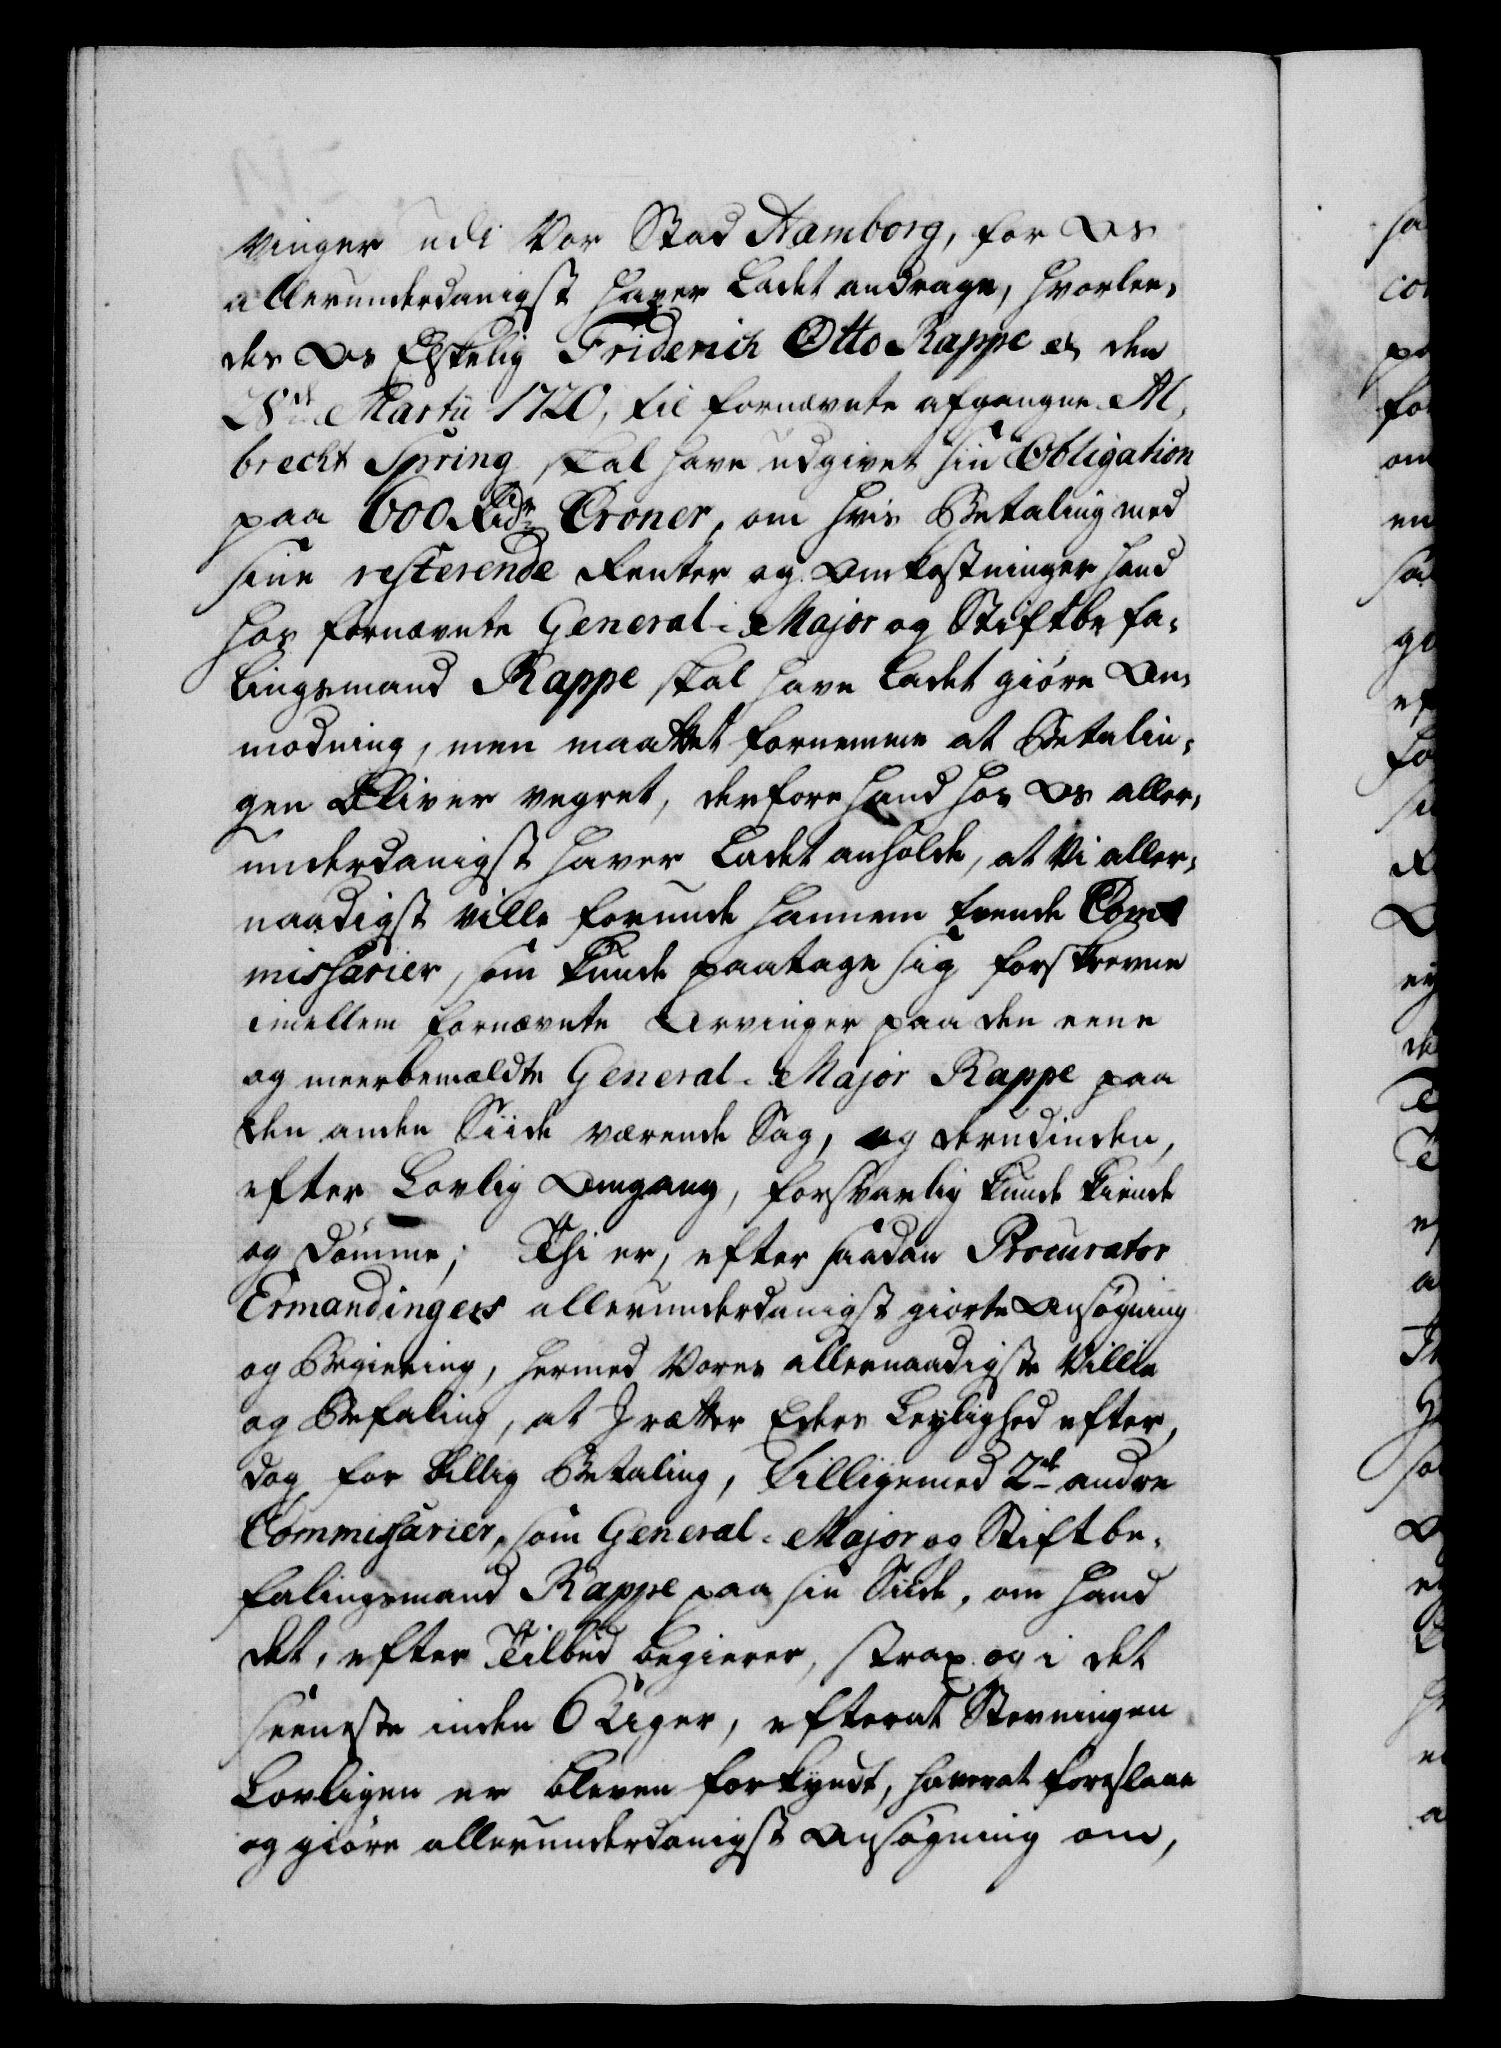 vinger udi Vor Stad Hamborg, for Os
allerunderdanigst haver ladet andrage, hvorlee-
des Os Elskelig Friderich Otto Rappe etc den
28de Martii 1720, til fornævnte afgangne Al-
brecht Spring skal have udgivet sin Obligation
paa 600 Rdr Croner, om hvis Betaling med
sine resterende Renter og Omkostninger hand
hos fornævnte General-Major og Stiftbefa-
lingsmand Rappe skal have ladet giöre An-
modning, men maattet fornemme at Betalin-
gen bliver vegret, derfore hand hos Os aller-
underdanigst haver ladet anholde, at Vi aller-
naadigst ville forunde hannem tvende Com-
missarier, som kunde paatage sig forskrevne
imellem fornævnte Arvinger paa den eene
og meerbemældte General-Major Rappe paa
den anden Siide værende Sag, og derudinden,
efter Lovlig Omgang, forsvarlig kunde kiende
og dömme; Thi er, efter saadan Procurator
Ermandingers allerunderdanigst giorte Ansögning
og Begiering, hermed Vores allernaadigste Villie
og Befaling, at I retter Eders Leylighed efter,
dog for billig Betaling, tilligemed 2de andre
Commissarier, som General-Major og Stiftbe-
falingsmand Rappe paa sin Siide, om hand
det, efter Tilbud begierer, strax og i det
seeneste inden 6 Uger, efterat Stevningen
Lovligen er bleven forkyndt, haver at foreslaae
og giöre allerunderdanigst Ansögning om,